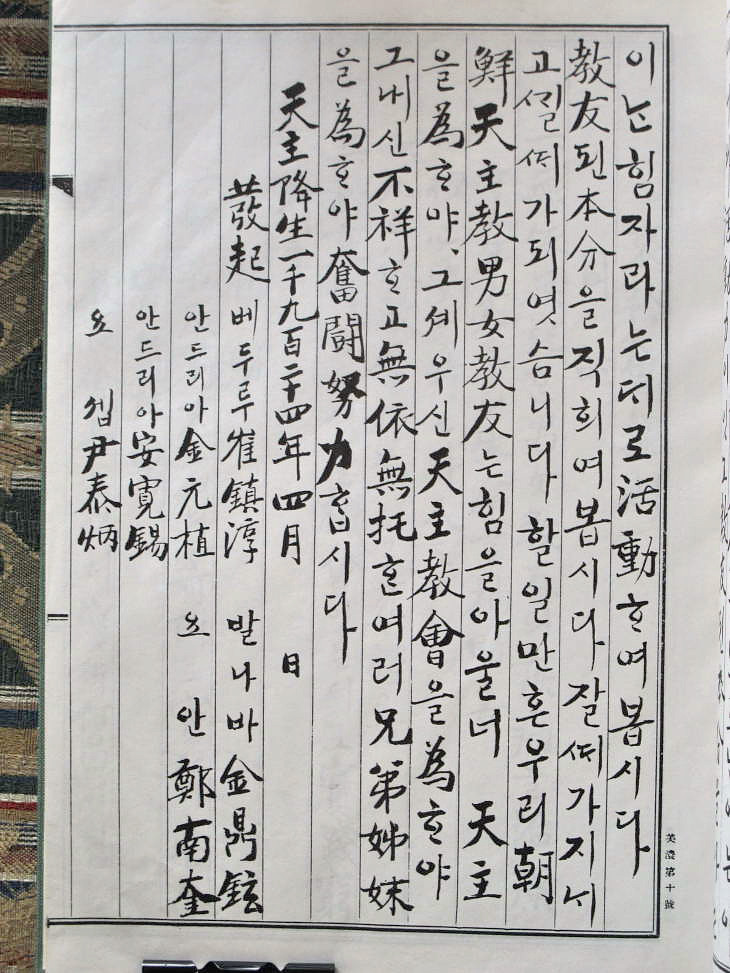 이ᄂᆞᆫ힘자라는ᄃᆡ로活動ᄒᆞ여봅시다
敎友된本分을직희여봅시다잘ᄯᅢ가지나
고ᄭᆡᆯᄯᅢ가되엿슴니다할일만흔우리朝
鮮天主敎男女敎友는힘을아울너 天主
을爲ᄒᆞ야、그셰우신天主敎會을爲ᄒᆞ야
그내신不祥ᄒᆞ고無依無托ᄒᆞᆫ여러兄弟姊妹
을爲ᄒᆞ야奮鬪努力합시다
天主降生一千九百二十四年四月 日
發起 베두루崔鎭淳 발나바金鼎鉉
안드리아金元植 요안鄭南奎
안드리아安寬錫
요셉尹泰炳
美濃第十號